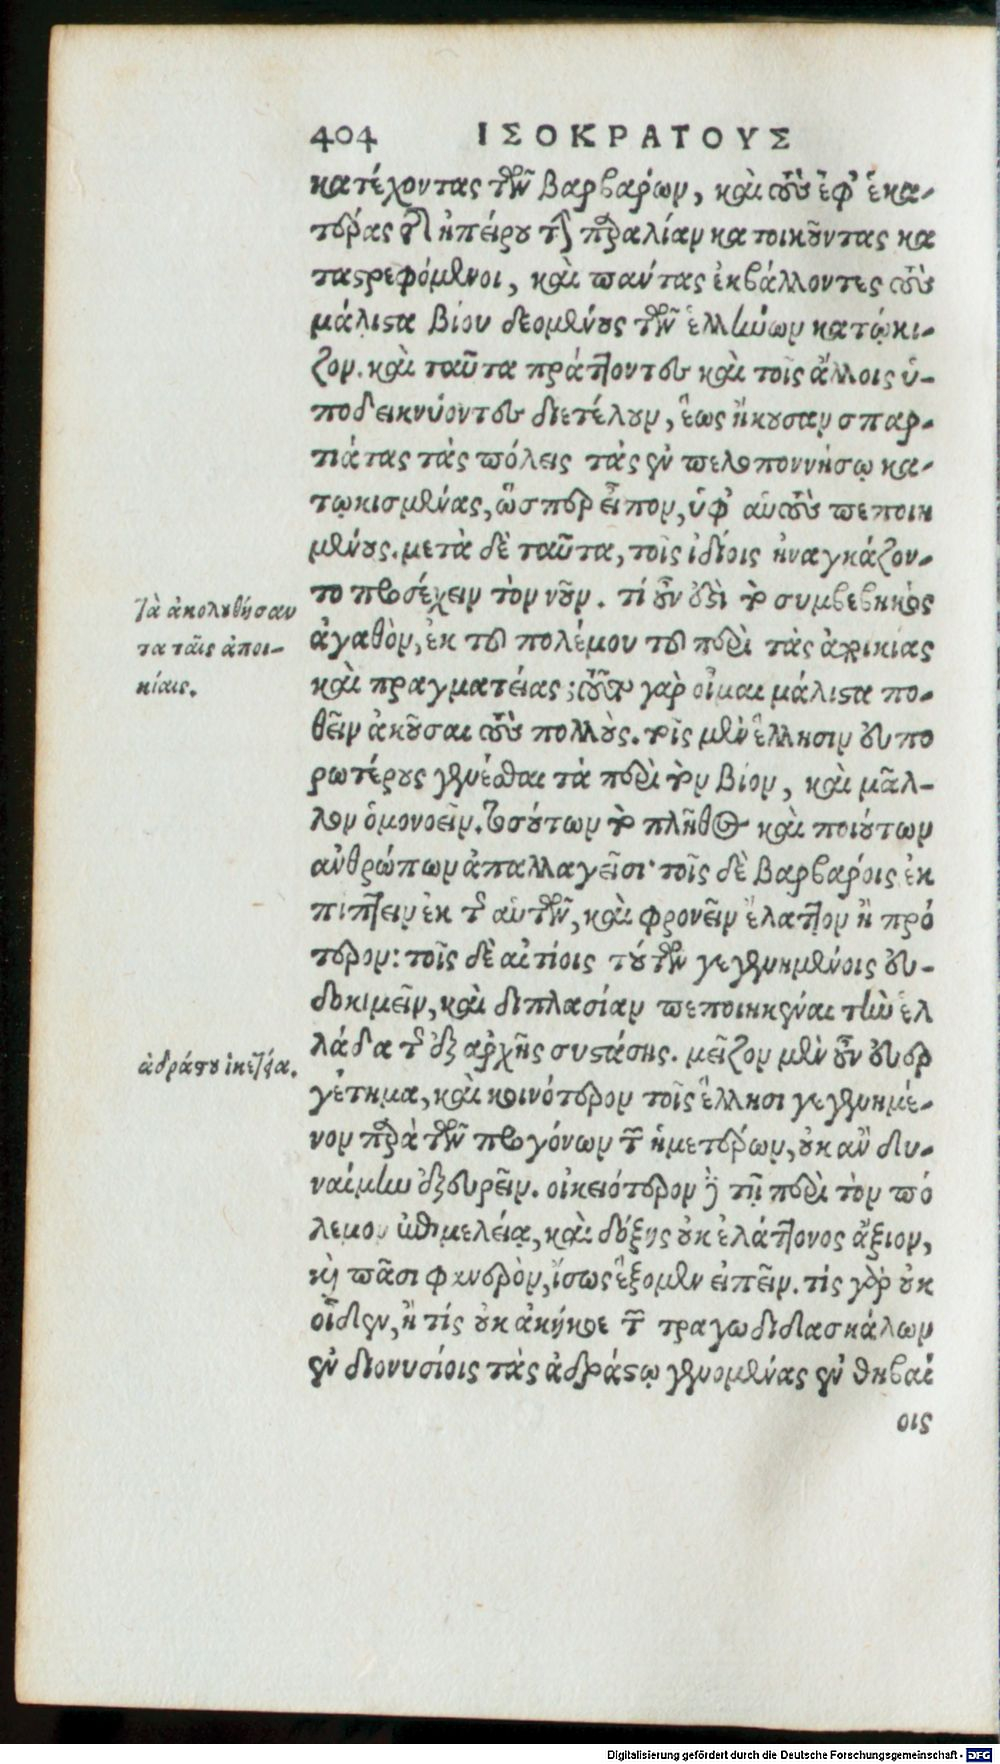 404 ΙΣΟΚΡΑΤΟΥΣ
κατέχοντας τῶν βαρβαρών, καὶ τοὺς ἐφ' ἑκα-
τέρας τῆς ἠπείρου τὴν παραλίαν κατοικοῦντας κα
ταστρεφόμενοι, καὶ πάντας ἐκβάλλοντες τοὺς
μάλιστα βίου δεομένους τῶν ἑλλήνων κατῴκι-
ζον. καὶ ταῦτα πράττοντες καὶ τοῖς ἄλλοις ὑ-
ποδεικνύοντες διετέλουν, ἕως ἤκουσαν σπαρ-
τιάτας τὰς πόλεις τὰς ἐν πελοποννήσῳ κα-
τῳκισμένας, ὥσπερ εἶπον, ὑφ' αὑτοὺς πεποιη
μένους. μετὰ δὲ ταῦτα, τοῖς ἰδίοις ἠναγκάζον-
το προσέχειν τὸν νοῦν. τί οὖν ἐστι τὸ συμβεβηκὸς
ἀγαθὸν, ἐκ τοῦ πολέμου τοῦ περὶ τὰς ἀποικίας
καὶ πραγματείας; τοῦτο γὰρ οἶμαι μάλιστα πο-
θεῖν ἀκοῦσαι τοὺς πολλούς. τοῖς μὲν ἕλλησιν εὐπο
ρωτέρους γενέσθαι τὰ περὶ τὸν βίον, καὶ μᾶλ-
λον ὁμονοεῖν. τοσούτων τὸ πλῆθος καὶ τοιούτων
ἀνθρώπων ἀπαλλαγεῖσι· τοῖς δὲ βαρβαρόις ἐκ
πίπτειν ἐκ τῆς αὑτῶν, καὶ φρονεῖν ἔλαττον ἢ πρό
τερον: τοῖς δὲ αἰτίοις τούτων γεγενημένοις εὐ-
δοκιμεῖν, καὶ διπλασίαν πεποιηκέναι τὴν ἑλ
λάδα τῆς ἐξ ἀρχῆς συστάσης. μεῖζον μὲν οὖν εὐερ
γέτημα, καὶ κοινότερον τοῖς ἕλλησι γεγενημέ-
νον παρὰ τῶν προγόνων τῶν ἡμετέρων, οὐκ ἂν δυ-
ναίμην ἐξευρεῖν. οἰκειότερον δὲ τῇ περὶ τὸν πό
λεμον ἐπιμελείᾳ, καὶ δόξης οὐκ ἐλάττονος ἄξιον,
καὶ πᾶσι φανερὸν, ἴσως ἕξομεν εἰπεῖν. τίς γὰρ οὐκ
οἶδεν, ἢ τίς οὐκ ἀκήκοε τῶν τραγῳδιδασκάλων
ἐν διονυσίοις τὰς ἀδράστῳ γενομένας ἐν θηβαί
οις
Τὰ ἀκολουθήσαν
τα ταῖς ἀποι-
κίαις.
ἀδράστου ἱκετεία.
Digitalisierung gefördert durch die Deutsche Forschungsgemeinschaft - DFG